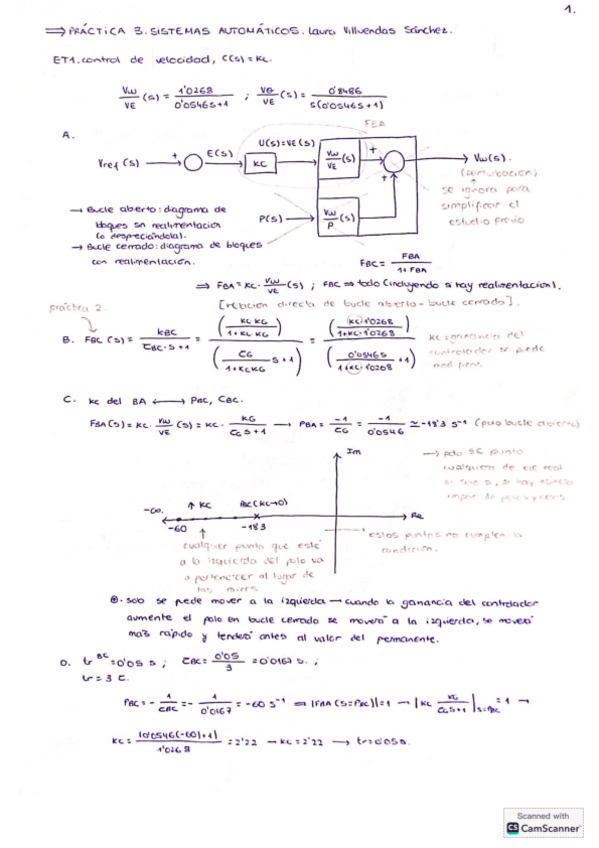 1.
⟹ PRÁCTICA 3. SISTEMAS AUTOMÁTICOS. Laura Villuendas Sánchez.
ET1. control de velocidad, C(s) = Kc.
Vω/VE (s) = 1'0268 / 0'0546s+1 ; Vθ/VE (s) = 0'8486 / s(0'0546s+1)
FBA
A.
U(s)=VE(s)
Vref(s) + E(s) KC Vω/VE (s) + Vω(s).
(perturbación)
se ignora para
simplificar el
estudio previo
P(s) Vω/P (s) +
→ Bucle abierto: diagrama de
bloques sin realimentación
(o despreciándola).
→ Bucle cerrado: diagrama de bloques
con realimentación.
FBC = FBA / 1+FBA
⟹ FBA = Kc · Vω/VE (s) ; FBC ⟹ todo (incluyendo si hay realimentación).
[relación directa de bucle abierto - bucle cerrado].
práctica 2.
B. FBC (s) = KBC / CBC·s+1 = (KC KG / 1+KC KG) / (CG / 1+KCKG s+1) = (KC·1'0268 / 1+KC·1'0268) / (0'0546s / 1+KC·1'0268 +1)
Kc = ganancia del
controlador se puede
C. Kc del BA ⟷ PBC, CBC.
FBA(s) = KC · Vω/VE (s) = KC · KG / CG s+1 → PBA = -1/CG = -1/0'0546 ≃ -18'3 s⁻¹ (polo bucle abierto)
Im
→ pdo BC punto
cualquiera de eje real
-∞. ↑ KC PBC(KC→0) Re
-60 -18'3
cualquier punto que esté
a la izquierda del polo va
a pertenecer al lugar de
las raíces
estos puntos no cumplen la
condición.
⊕. solo se puede mover a la izquierda → cuando la ganancia del controlador
aumente el polo en bucle cerrado se moverá a la izquierda, se moverá
más rápido y tenderá antes al valor del permanente.
D. tr^BC = 0'05 s ; CBC = 0'05/3 = 0'0167 s. ;
tr = 3 C.
PBC = - 1/CBC = - 1/0'0167 = -60 s⁻¹ ⟹ |FBA (s=PBC)| = 1 → | KC KG / CG s+1 | s=PBC = 1 →
KC = |0'0546(-60)+1| / 1'0268 = 2'22 → KC = 2'22 → tr = 0'05 s.
Scanned with
CS CamScanner